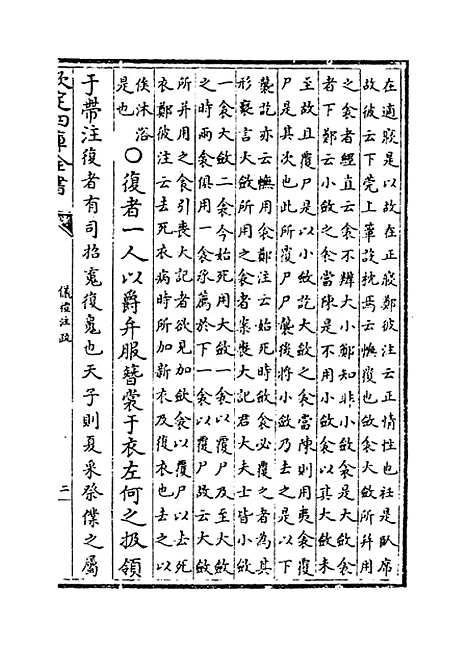 在適寢是以故在正寢鄭彼注云正情性也衽是臥席
故彼云下莞上簟設枕焉云幠覆也斂衾大斂所幷用
之衾者經直云衾不辨大小鄭知非小斂衾是大斂衾
者下鄭云小斂之衾當陳是不用小斂衾以其大斂未
至故且覆尸是以小斂訖大斂之衾當陳則用夷衾覆
尸是其次也此所覆尸尸襲後將小斂乃去之是以下
襲訖亦云幠用衾鄭注云始死時斂衾必覆之者為其
形褻言大斂所用之衾者案喪大記君大夫士皆小斂
一衾大斂二衾今始死用大斂一衾以覆尸及至大斂
之時兩衾俱用一衾承薦於下一衾以覆尸故云大斂
所幷用之衾引喪大記者欲見加斂衾以覆尸以去死
衣鄭彼注云去死衣病時所加新衣及復衣也去之以
俟沐浴
是也〇復者一人以爵弁服簪裳于衣左何之扱領
于帶注復者有司招䰟復䰟也天子則夏采祭僕之屬
欽定四庫全書
儀禮注疏
二